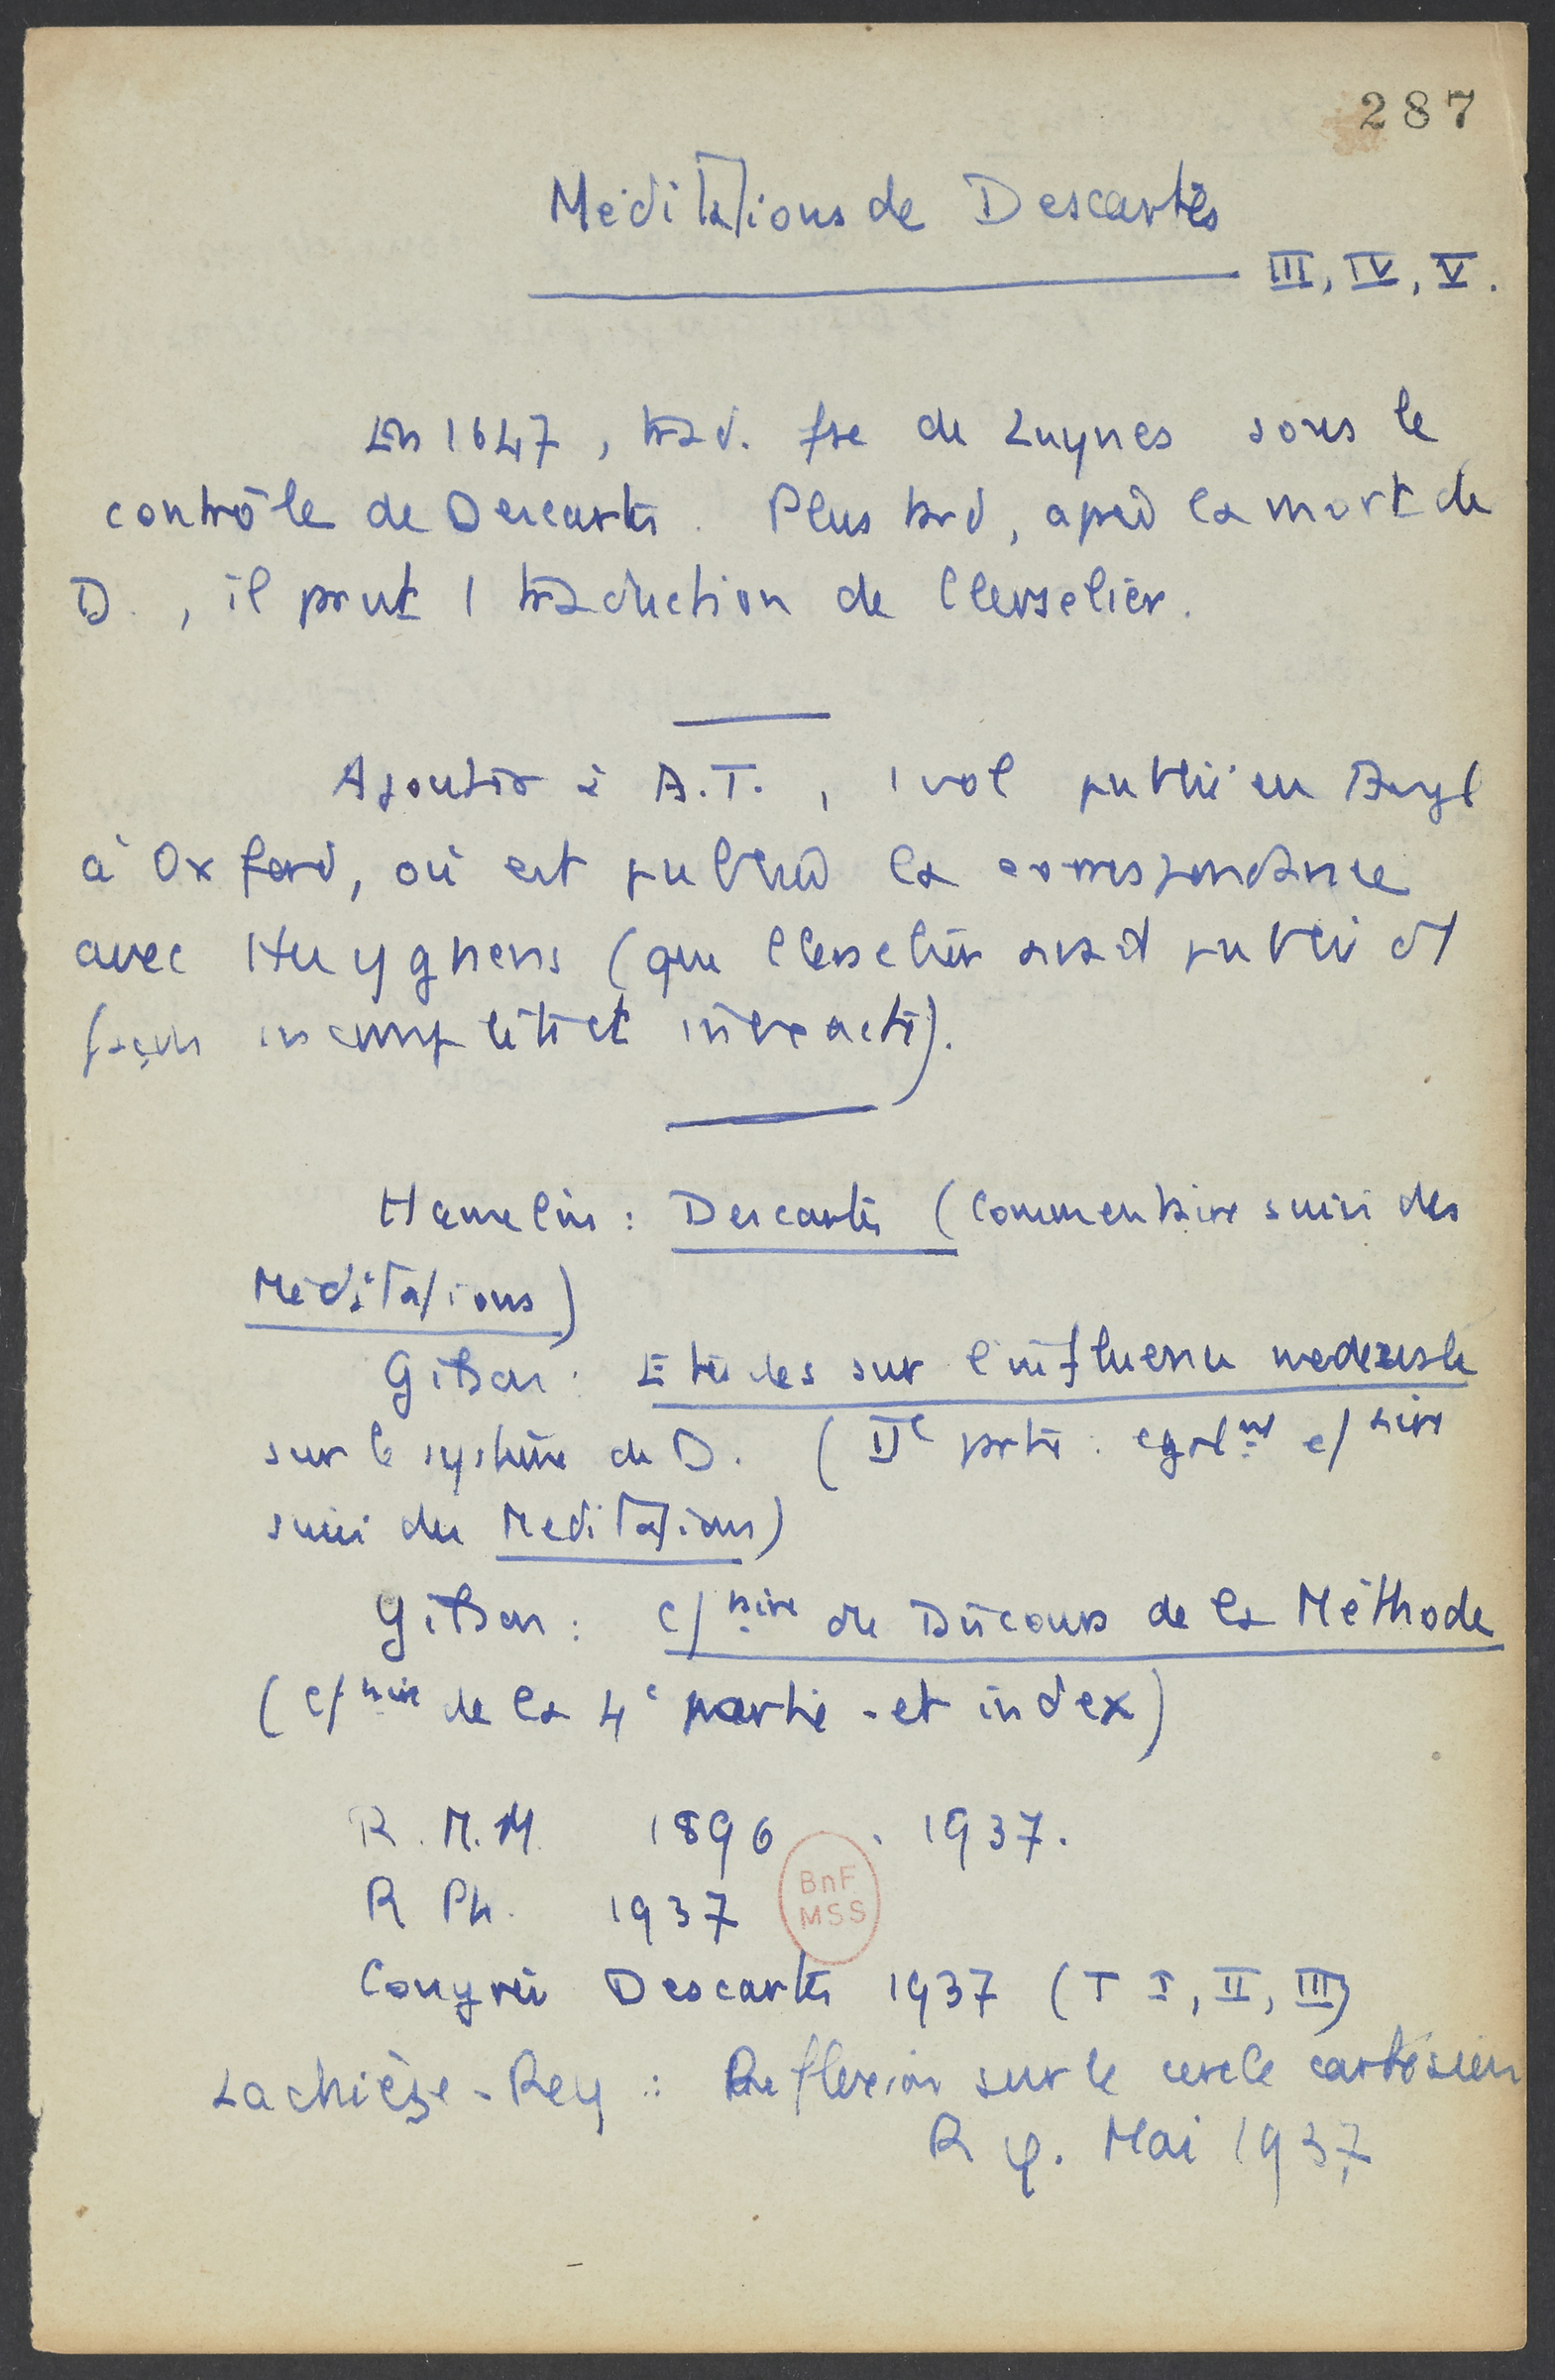 287
Méditations de Descartes
III, IV, V.
En 1647, trad. fse de Luynes sous le
contrôle de Descartes. Plus tard, après la mort de
D., il parut 1 traduction de Clerselier.
Ajouter à A.T., 1 vol publié en Angl
à Oxford, où est publiée la correspondance
avec Huyghens (que Clerselier avait publié d'1
façon incomplète et inexacte).
Hamelin : Descartes (Commentaire suivi des
Méditations)
Gilson : Etudes sur l'influence médiévale
sur le système de D. (IIe partie : egalmt c/taire
suivi des Meditations)
Gilson : c/taire du Discours de la Méthode
(c/taire de la 4e partie - et index)
R.M.M. 1896 . 1937.
R Ph. 1937
BnF
MSS
Congrès Descartes 1937 (T I, II, III)
Lachièze-Rey : Reflexion sur le cercle cartésien
R φ. Mai 1937